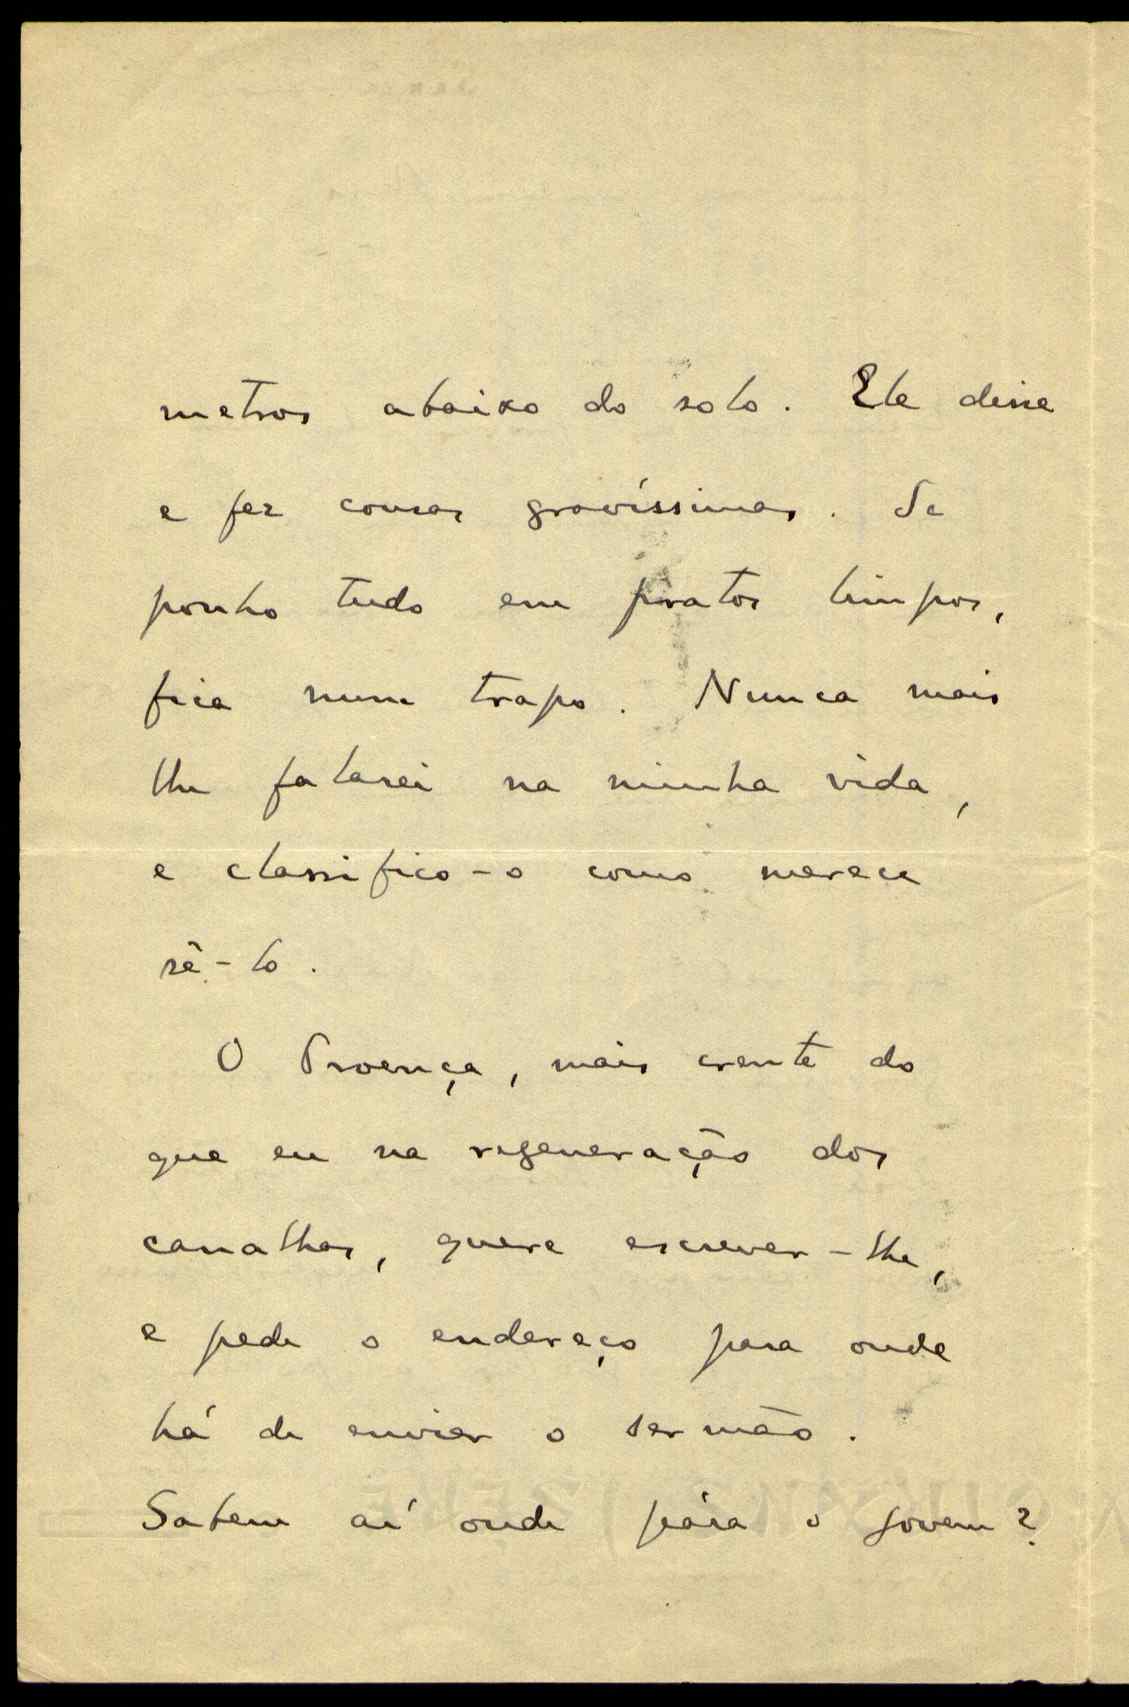 metros abaixo do solo. Ele disse
e fez cousas gravíssimas. Se
ponho tudo em pratos limpos,
fica num trapo. Nunca mais
lhe falarei na minha vida,
e classifico-o como merece
sê-lo.
O Proença, mais crente do
que eu na regeneração dos
canalhas, quere escrever-lhe,
e pede o endereço para onde
há de enviar o sermão.
Sabem aí onde pára o jovem?